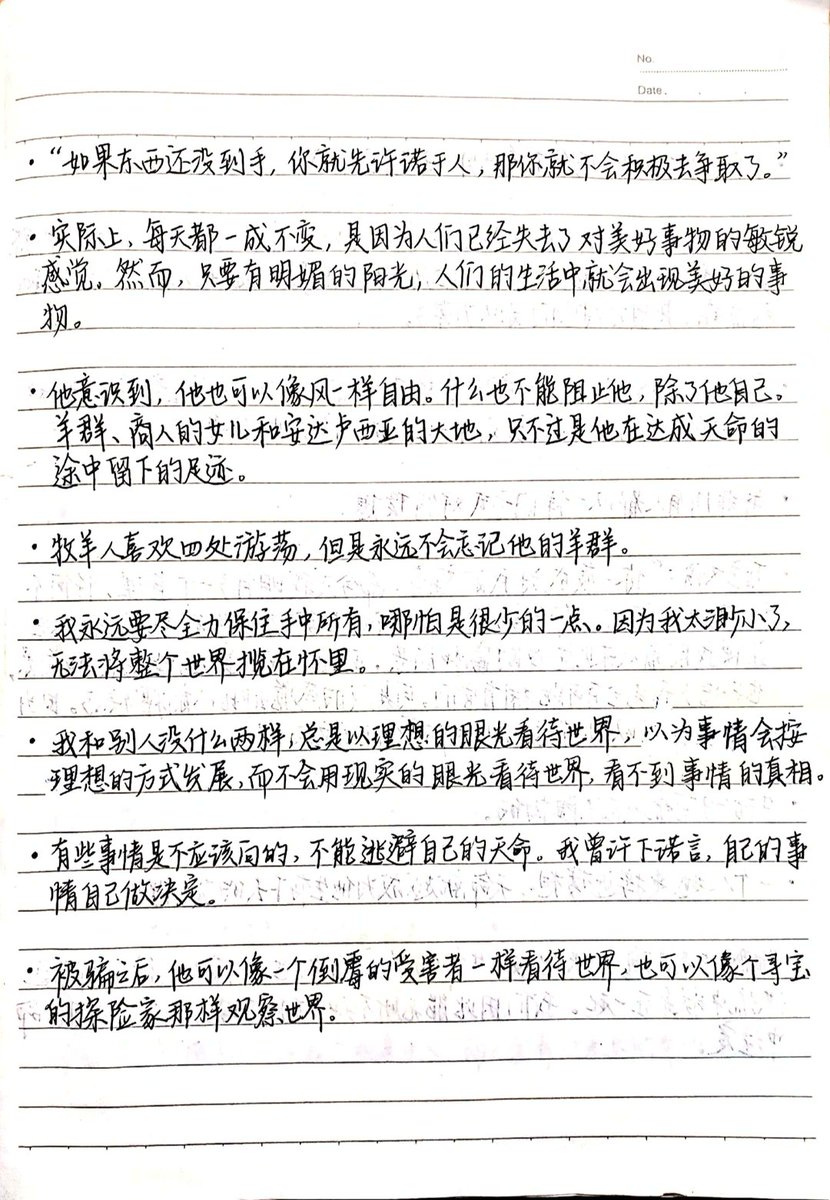 No.
Date. . .
·“如果东西还没到手，你就先许诺于人，那你就不会积极去争取了。”
·实际上，每天都一成不变，是因为人们已经失去了对美好事物的敏锐
感觉。然而，只要有明媚的阳光，人们的生活中就会出现美好的事
物。
·他意识到，他也可以像风一样自由。什么也不能阻止他，除了他自己。
羊群、商人的女儿和安达卢西亚的大地，只不过是他在达成天命的
途中留下的足迹。
·牧羊人喜欢四处游荡，但是永远不会忘记他的羊群。
·我永远要尽全力保住手中所有，哪怕是很少的一点。因为我太渺小了，
无法将整个世界揽在怀里。
·我和别人没什么两样，总是以理想的眼光看待世界，以为事情会按
理想的方式发展，而不会用现实的眼光看待世界，看不到事情的真相。
·有些事情是不应该问的，不能逃避自己的天命。我曾许下诺言，自己的事
情自己做决定。
·被骗之后，他可以像一个倒霉的受害者一样看待世界，也可以像个寻宝
的探险家那样观察世界。